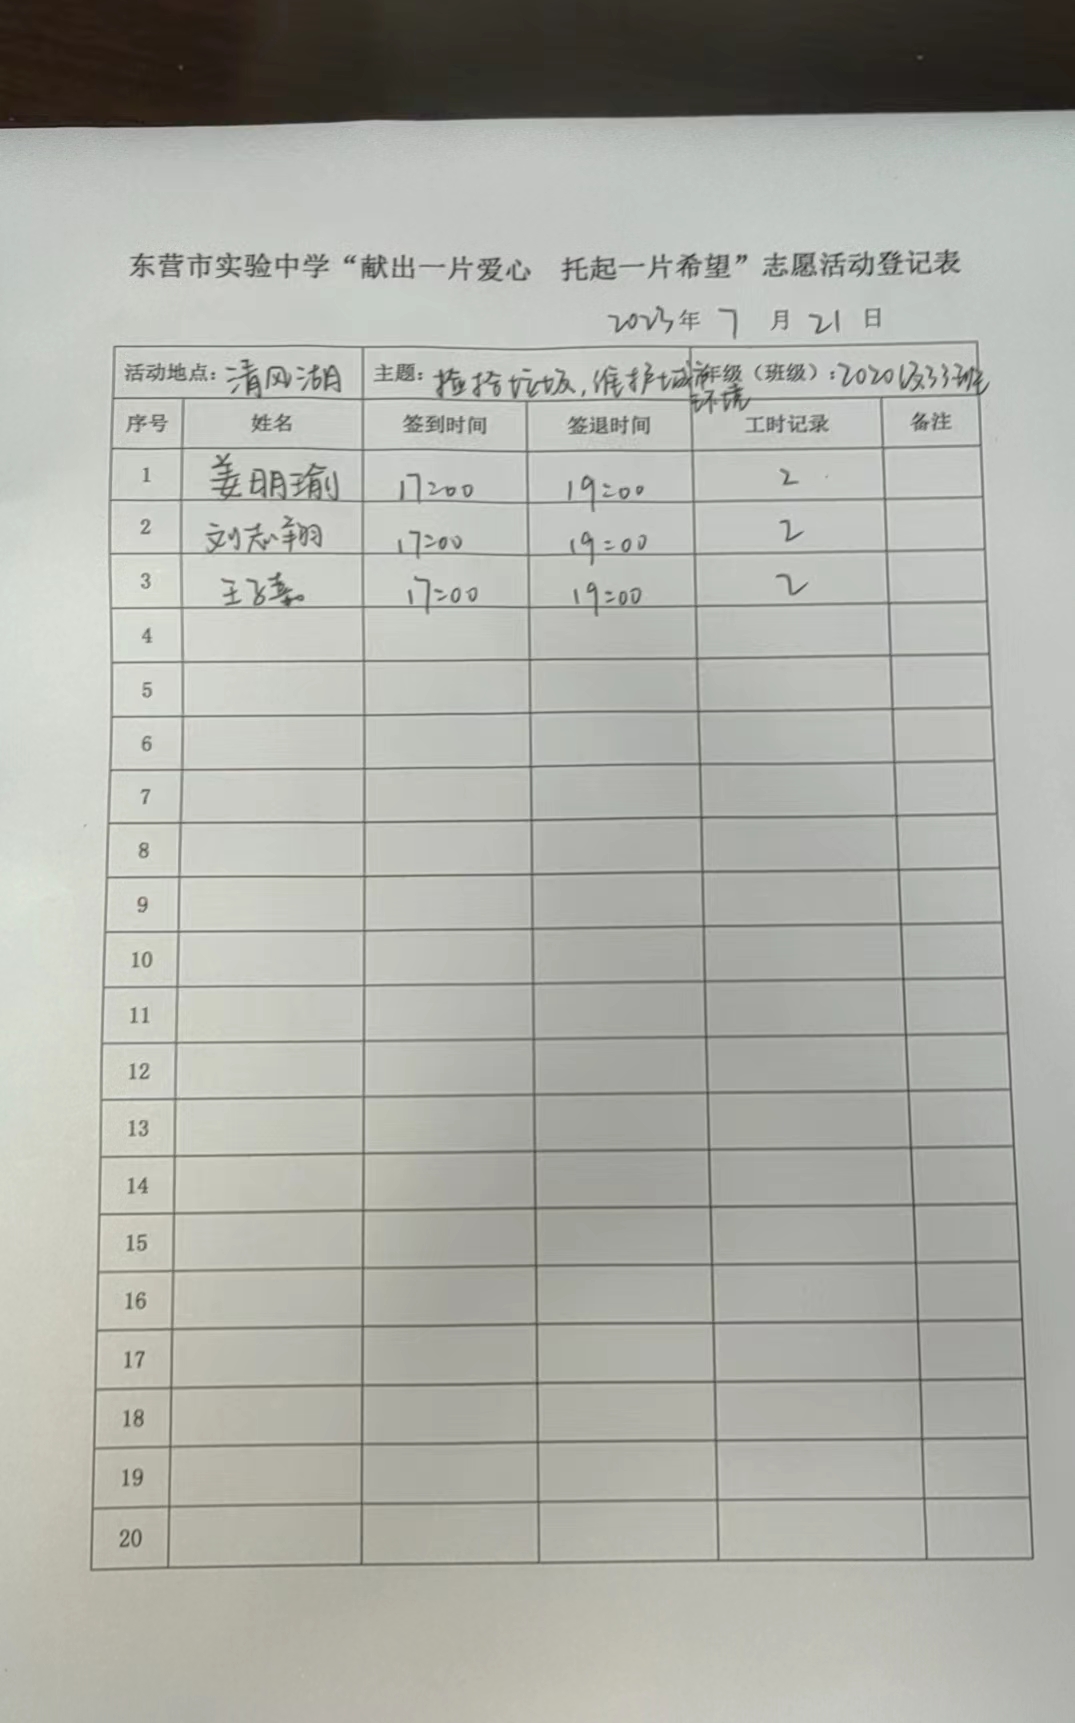 东营市实验中学“献出一片爱心 托起一片希望”志愿活动登记表
2023年 7 月 21 日
活动地点：清风湖 主题：捡拾垃圾，维护城市环境 年级（班级）：2020级33班
序号 姓名 签到时间 签退时间 工时记录 备注
1 姜明瑜 17:00 19:00 2
2 刘志翔 17:00 19:00 2
3 王子嘉 17:00 19:00 2
4
5
6
7
8
9
10
11
12
13
14
15
16
17
18
19
20